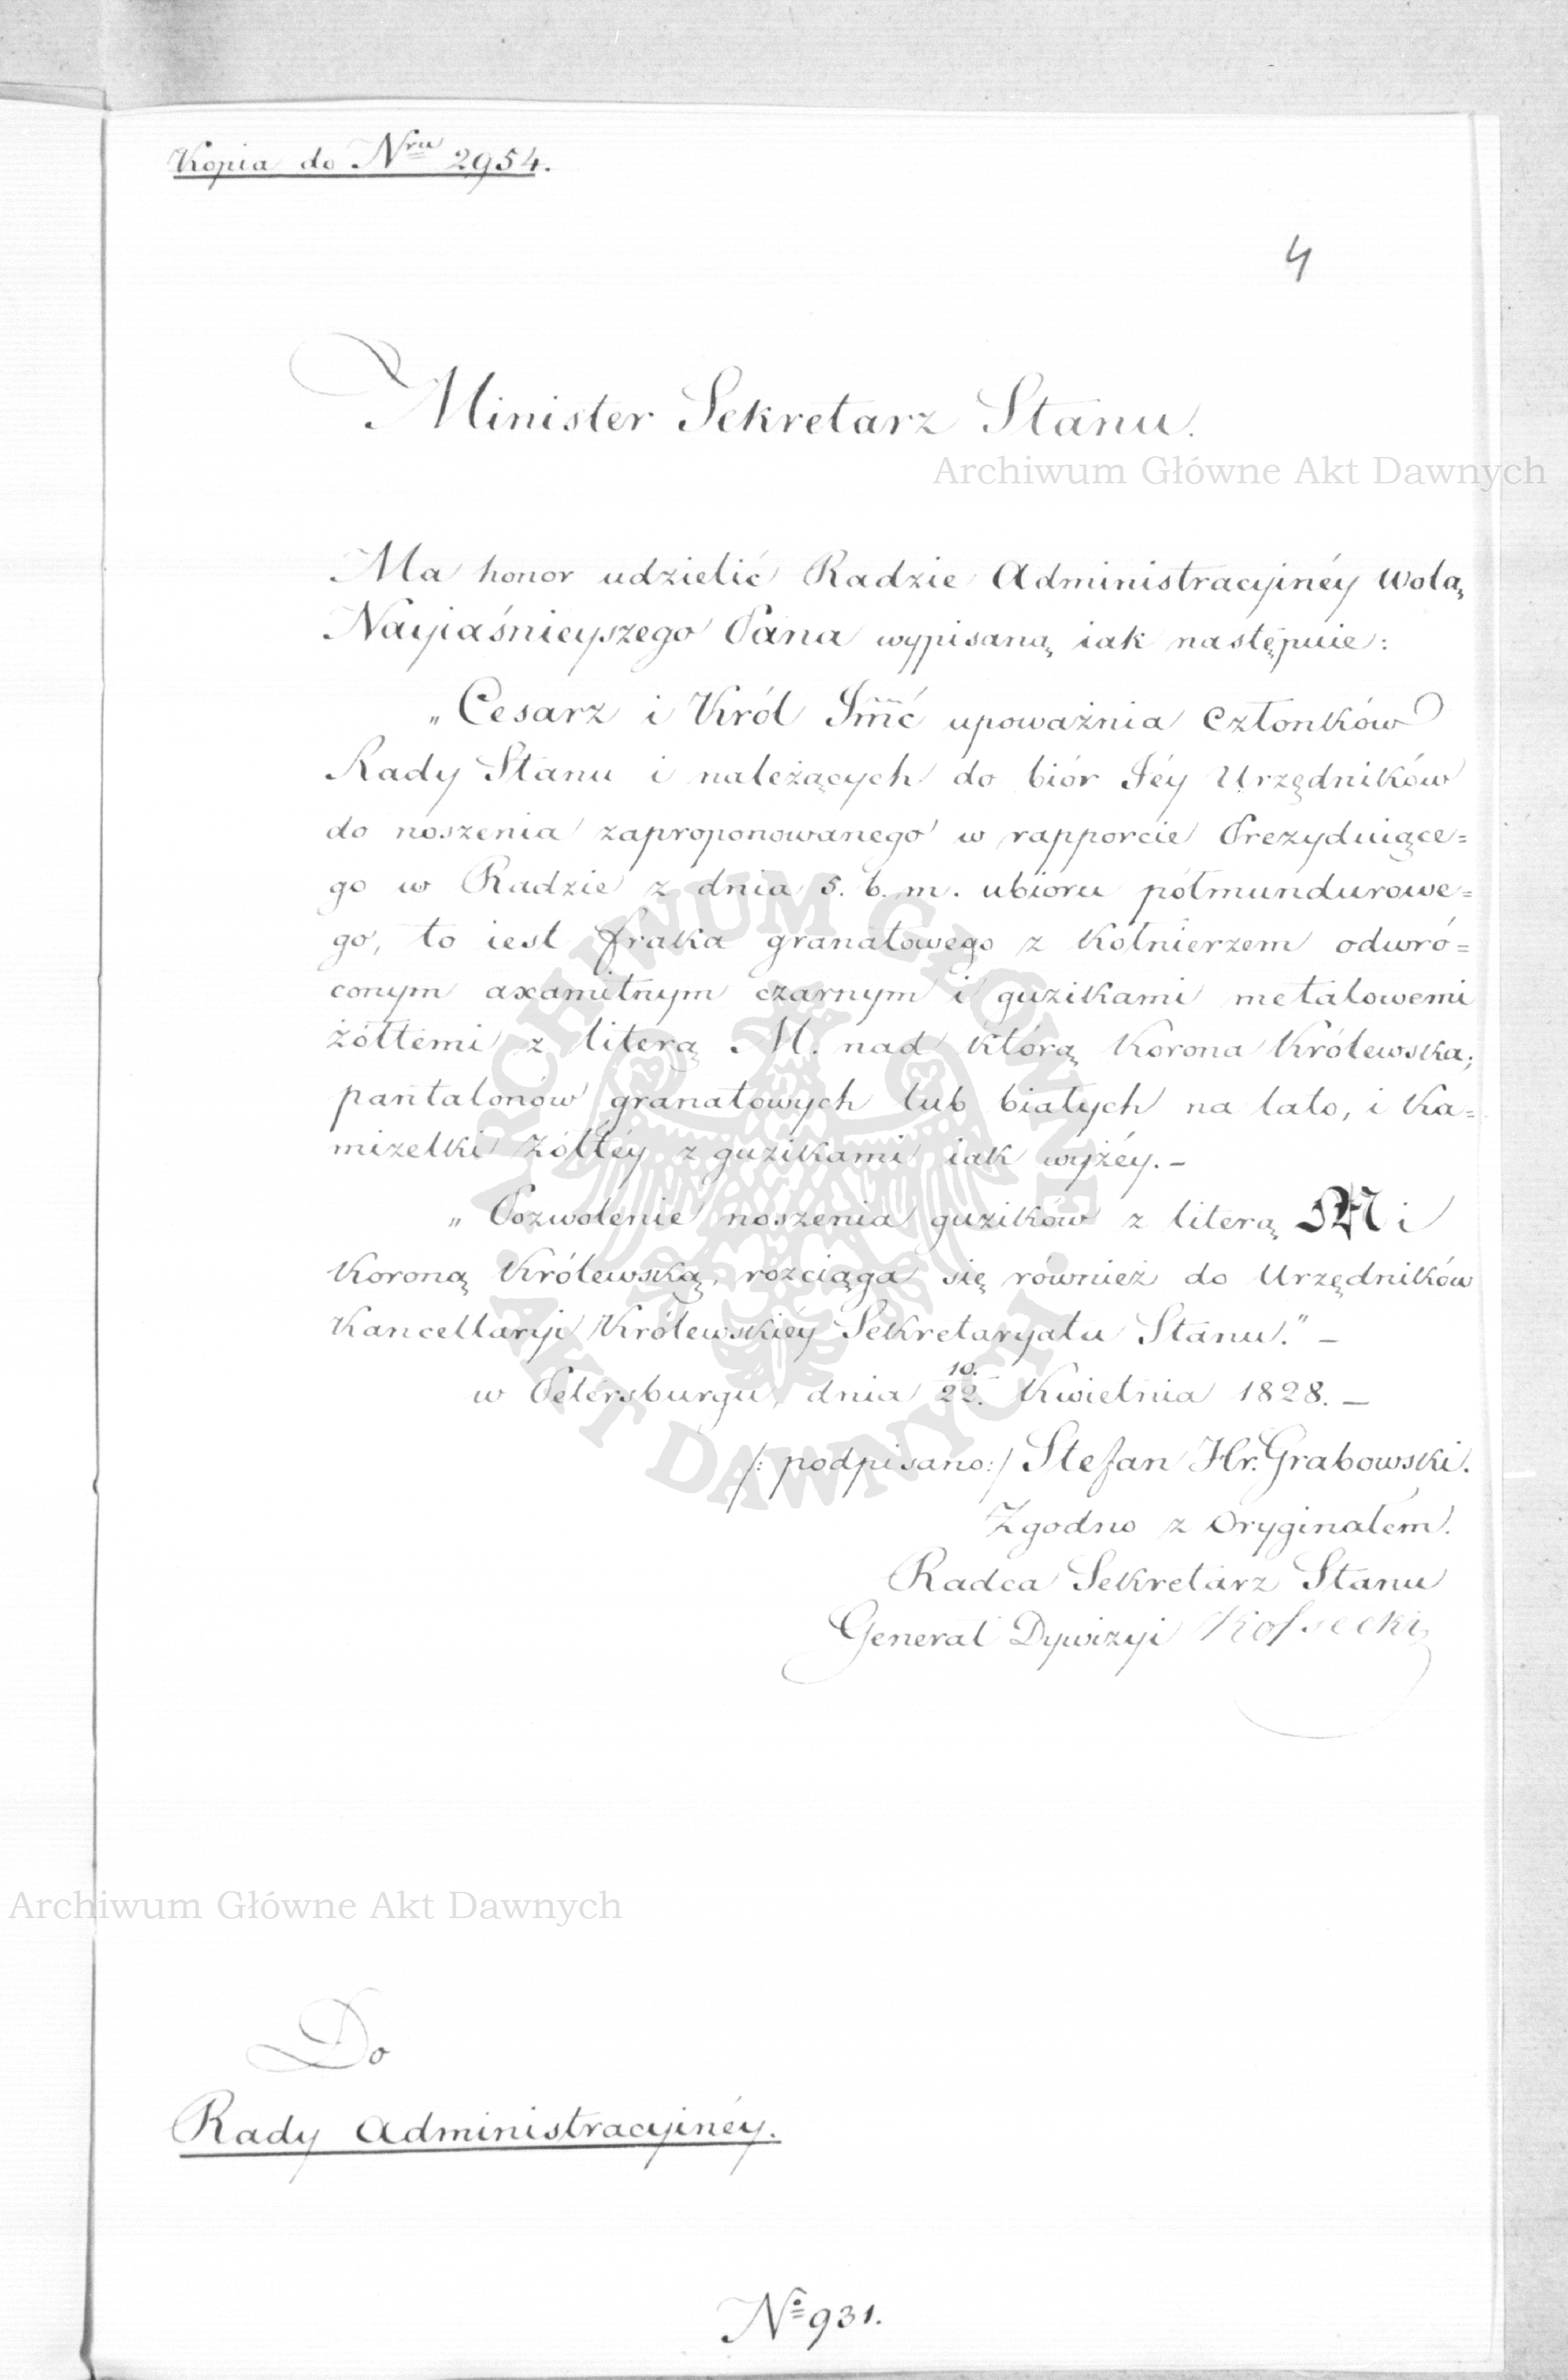 Kopia do Nru 2954.
4
Minister Sekretarz Stanu.
Archiwum Główne Akt Dawnych
Ma honor udzielić Radzie Administracyinéy wolą
Nayiaśnieyszego Pana wypisaną iak następuie:
„Cesarz i Król Jmć upoważnia Członków
Rady Stanu i należących do biór Jéy Urzędników
do noszenia zaproponowanego w rapporcie Prezyduiące=
go w Radzie z dnia 5. b. m. ubioru półmundurowe=
go, to iest fraka granatowego z kołnierzem odwró=
conym axamitnym czarnym i guzikami metalowemi
żółtemi z literą M. nad którą Korona Królewska;
pantalonów granatowych lub białych na lato, i ka=
mizelki żółtéy z guzikami iak wyżéy. –
„Pozwolenie noszenia guzików z literą M i
Koroną Królewską, rozciąga się również do Urzędników
Kancellaryi Królewskiéy Sekretaryatu Stanu." –
w Petersburgu, dnia 10./22. Kwietnia 1828. –
/: podpisano :/ Stefan Hr. Grabowski.
Zgodno z Oryginałem.
Radca Sekretarz Stanu
Generał Dywizyi Kossecki
ARCHIWUM GŁÓWNE
AKT DAWNYCH
Archiwum Główne Akt Dawnych
Do
Rady Administracyinéy.
No 931.